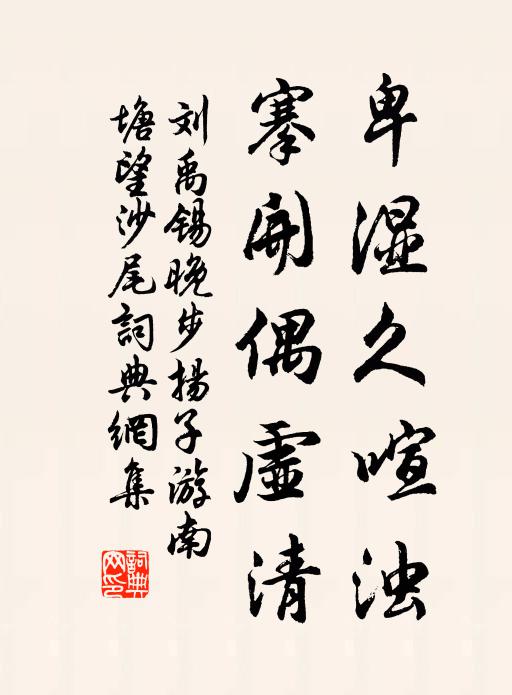 卑湿久喧浊
搴開偶虛清
刘禹锡晚步揚子游南
塘望沙尾詞典網集
詞典网印